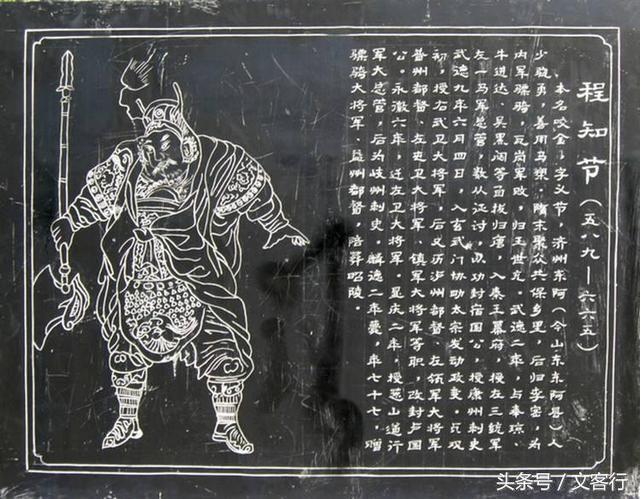 程知节（五八九—六六五）
本名咬金，字义节，济州东阿（今山东东阿县）人
少骁勇，善用马槊。隋末聚众共保乡里，后归李密，为
内军骠骑，瓦岗军败，归王世充。武德二年，与秦琼、
牛进达、吴黑闼等自拔归唐，入秦王幕府，授左三统军
左一马军总管，数从征讨，以功封宿国公，授康州刺史
武德九年六月四日，入玄武门协助太宗发动政变。贞观
初，授右武卫大将军，后又历泸州都督、左领军大将军
普州都督、左屯卫大将军、镇军大将军等职，改封卢国
公。永徽六年，迁左卫大将军。显庆二年，授葱山道行
军大总管，后为岐州刺史。麟德二年薨，年七十七，赠
骠骑大将军、益州都督，陪葬昭陵。
头条号／文客行